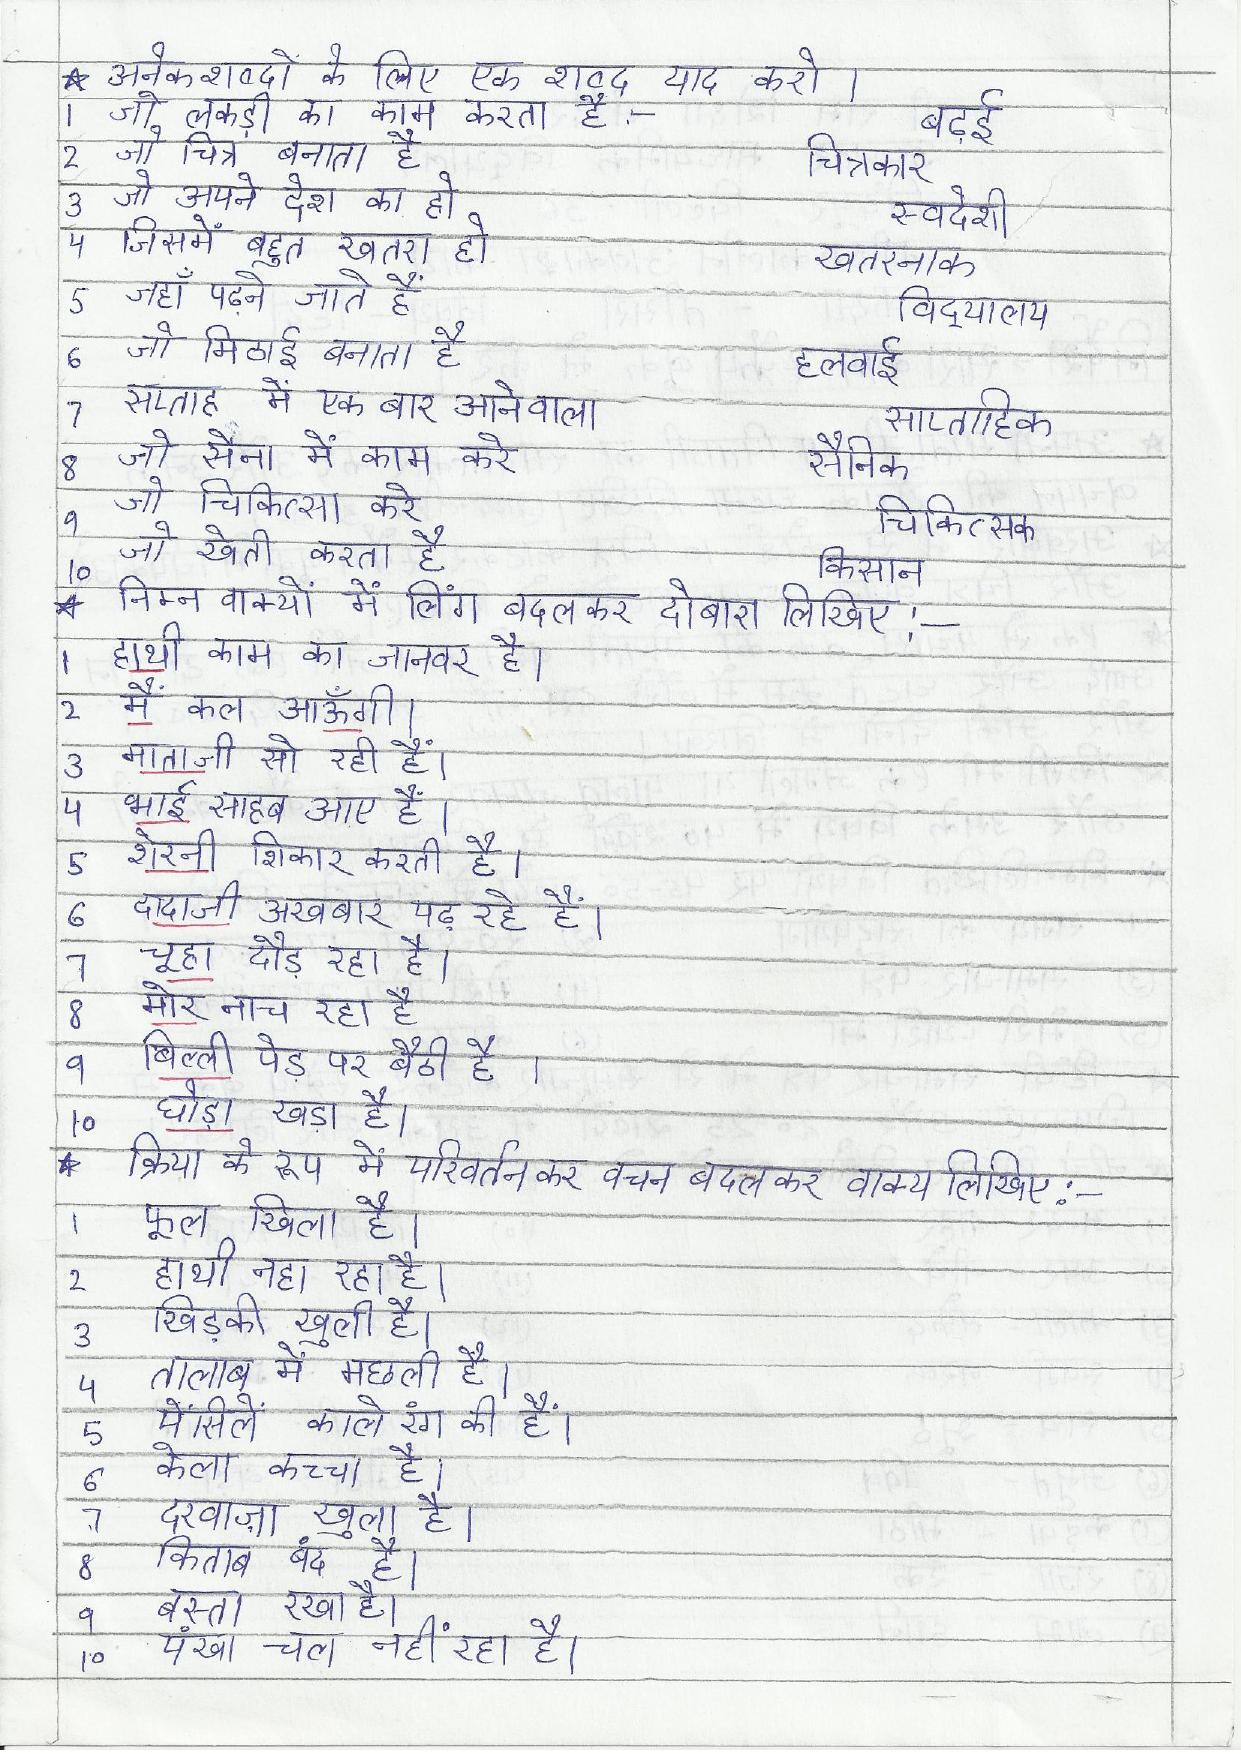 * अनेक शब्दों के लिए एक शब्द याद करो।
1 जो लकड़ी का काम करता है :- बढ़ई
2 जो चित्र बनाता है चित्रकार
3 जो अपने देश का हो स्वदेशी
4 जिसमें बहुत खतरा हो खतरनाक
5 जहाँ पढ़ने जाते हैं विद्यालय
6 जो मिठाई बनाता है हलवाई
7 सप्ताह में एक बार आनेवाला साप्ताहिक
8 जो सैना में काम करे सैनिक
9 जो चिकित्सा करे चिकित्सक
10 जो खेती करता है किसान
* निम्न वाक्यों में लिंग बदलकर दोबारा लिखिए :—
1 हाथी काम का जानवर है।
2 मैं कल आऊँगी।
3 माताजी सो रही हैं।
4 भाई साहब आए हैं।
5 शेरनी शिकार करती है।
6 दादाजी अखबार पढ़ रहे हैं।
7 चूहा दौड़ रहा है।
8 मोर नाच रहा है
9 बिल्ली पेड़ पर बैठी है ।
10 घोड़ा खड़ा है।
* क्रिया के रूप में परिवर्तन कर वचन बदलकर वाक्य लिखिए :—
1 फूल खिला है।
2 हाथी नहा रहा है।
3 खिड़की खुली है।
4 तालाब में मछली है।
5 पेंसिलें काले रंग की हैं।
6 केला कच्चा है।
7 दरवाज़ा खुला है।
8 किताब बंद है।
9 बस्ता रखा है।
10 पंखा चल नहीं रहा है।